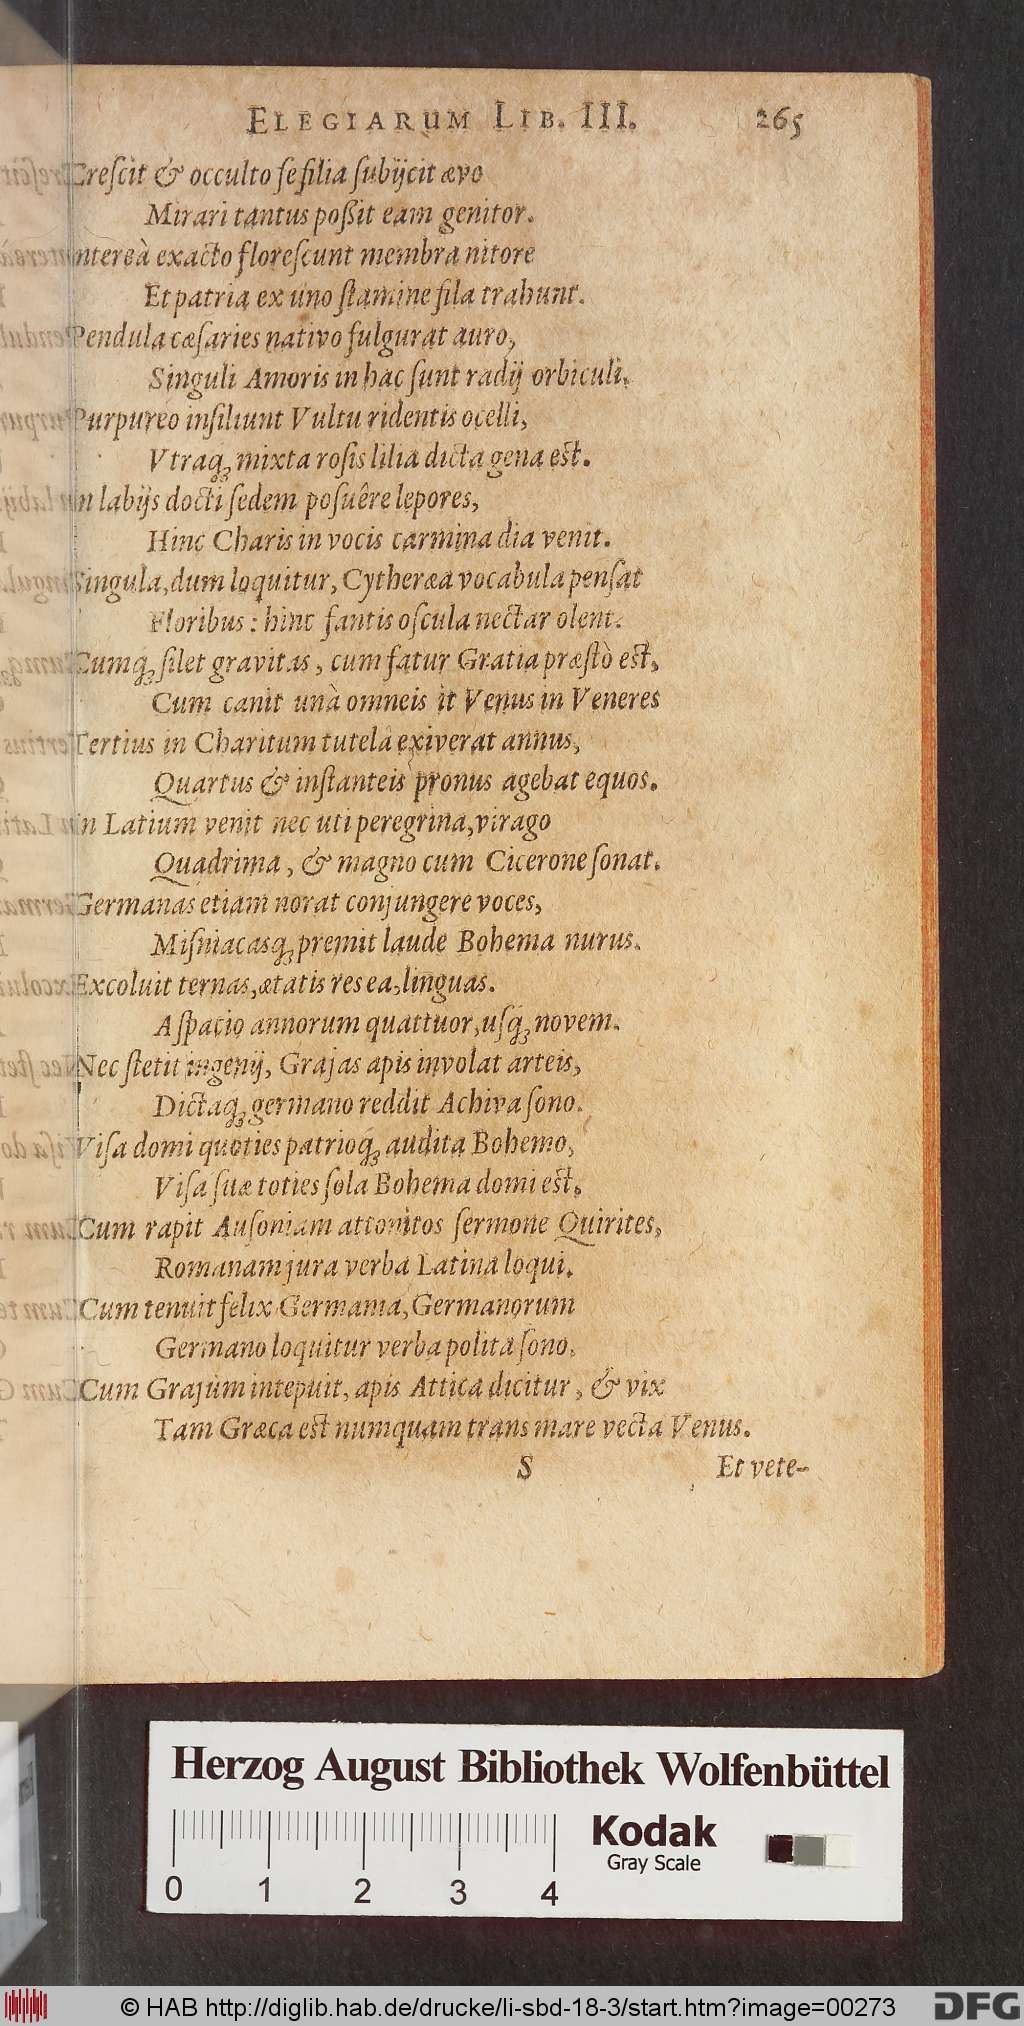 ELEGIARUM LIB. III. 265
Creſcit & occulto ſe filia ſubijcit ævo
Mirari tantus poßit eam genitor.
Intereà exacto floreſcunt membra nitore
Et patria ex uno ſtamine fila trahunt.
Pendula cæſaries nativo fulgurat auro,
Singuli Amoris in hac ſunt radij orbiculi.
Purpureo inſiliunt Vultu ridentis ocelli,
Vtraq; mixta roſis lilia dicta gena est.
In labijs docti ſedem poſuêre lepores,
Hinc Charis in vocis carmina dia venit.
Singula, dum loquitur, Cytheræa vocabula penſat
Floribus: hinc fantis oſcula nectar olent.
Cumq; ſilet gravitas, cum fatur Gratia præſtò est,
Cum canit unà omneis it Venus in Veneres
Tertius in Charitum tutelâ exiverat annus,
Quartus & inſtanteis pronus agebat equos.
In Latium venit nec uti peregrina, virago
Quadrima, & magno cum Cicerone ſonat.
Germanas etiam norat conjungere voces,
Miſniacasq; premit laude Bohema nurus.
Excoluit ternas, ætatis res ea, linguas.
A ſpacio annorum quattuor, uſq; novem.
Nec ſtetit ingenij, Grajas apis involat arteis,
Dictaq; germano reddit Achiva ſono.
Viſa domi quoties patrioq; audita Bohemo,
Viſa ſuæ toties ſola Bohema domi est.
Cum rapit Auſoniam attonitos ſermone Quirites,
Romanam jura verba Latina loqui.
Cum tenuit felix Germania, Germanorum
Germano loquitur verba polita ſono.
Cum Grajûm intepuit, apis Attica dicitur, & vix
Tam Græca est numquam trans mare vecta Venus.
S Et vete-
Herzog August Bibliothek Wolfenbüttel
Kodak
Gray Scale
0 1 2 3 4
© HAB http://diglib.hab.de/drucke/li-sbd-18-3/start.htm?image=00273
DFG